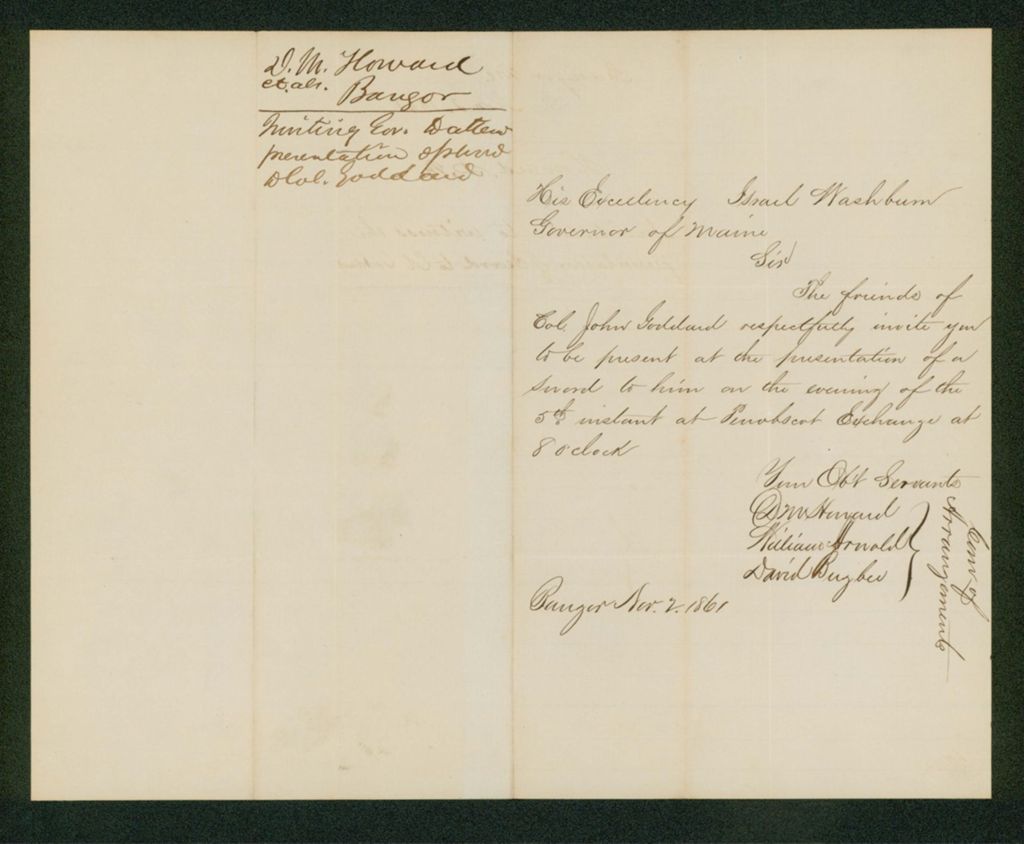 D. M. Howard
et. als.
Bangor
Inviting Gov. to attend
presentation of sword
to Col. Goddard
His Excellency Israel Washburn
Governor of Maine
Sir
The friends of
Col. John Goddard respectfully invite you
to be present at the presentation of a
sword to him on the evening of the
5th instant at Penobscot Exchange at
8 o'clock
Your Obt Servants
D M Howard
William Arnold
David Bugbee
Com of
Arrangements
Bangor Nov. 2. 1861